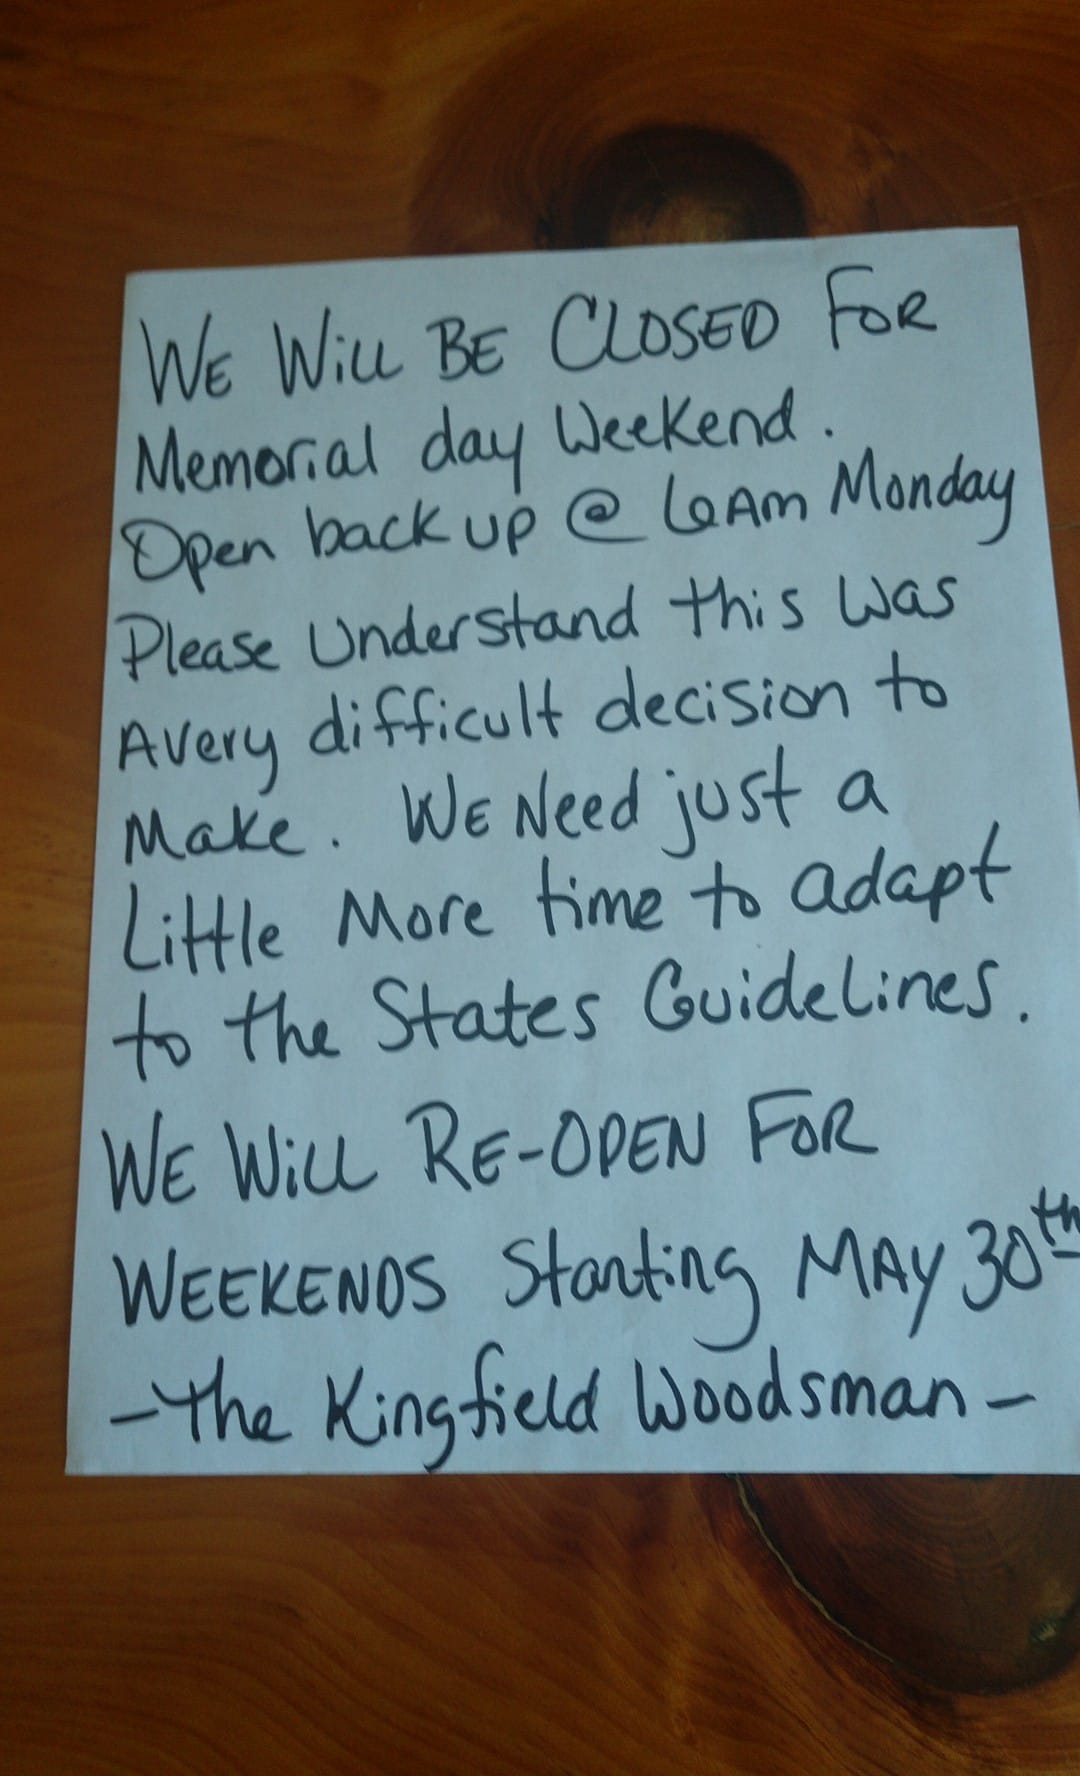 WE Will BE CLOSED FOR
Memorial day Weekend.
Open back up @ 6AM Monday
Please Understand this was
A very difficult decision to
Make. WE Need just a
Little More time to adapt
to the States Guidelines.
WE Will RE-OPEN FOR
WEEKENDS Starting MAY 30th
- The Kingfield Woodsman -